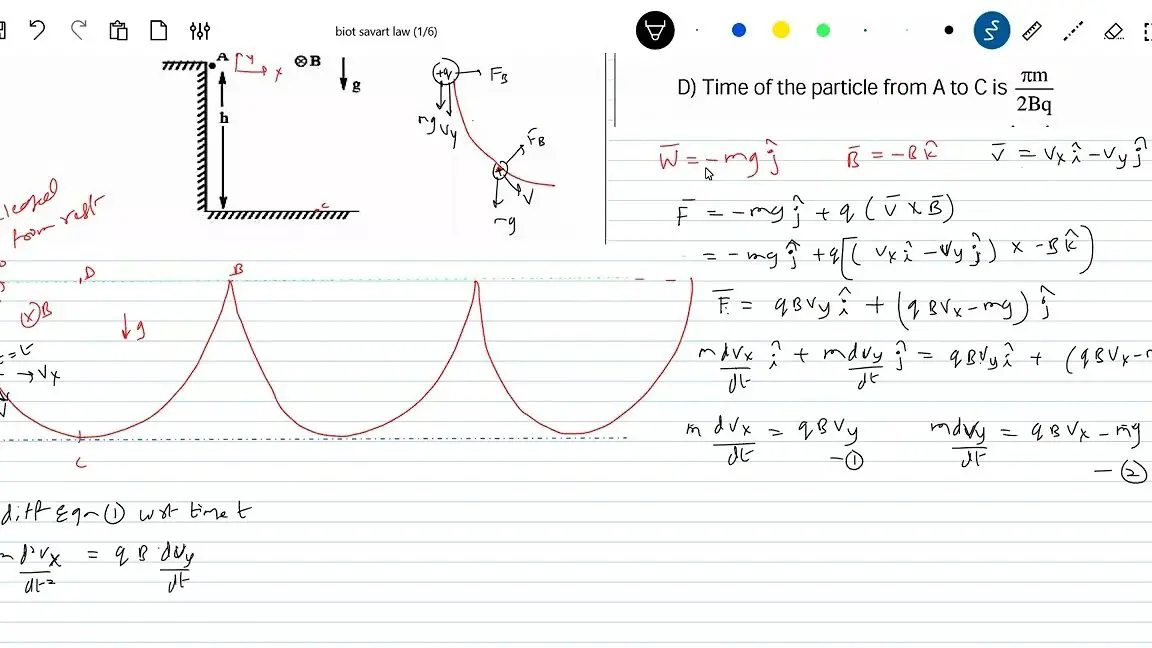 biot savart law (1/6)
A y x ⊗B g
h
c
+q F_B
mg v_y
F_B
V
mg
D) Time of the particle from A to C is πm/2Bq
from rest
W̄ = -mg ĵ B̄ = -B k̂ V̄ = Vx î - Vy ĵ
F̄ = -mg ĵ + q (V̄ × B̄)
= -mg ĵ + q[(Vx î - Vy ĵ) × -B k̂]
F̄ = qBVy î + (qBVx - mg) ĵ
m dVx/dt î + m dVy/dt ĵ = qBVy î + (qBVx - m
m dVx/dt = qBVy -① m dVy/dt = qBVx - mg -②
D B
ⓧB
↓g
t = t
→ Vx
V
C
diff Eqn ① wrt time t
m d²Vx/dt² = qB dVy/dt